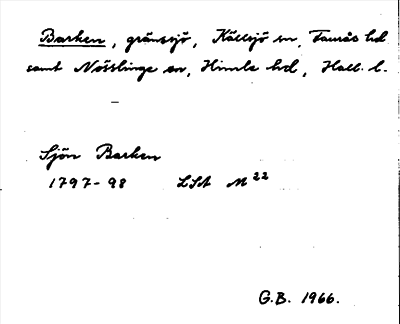 Barken, gränssjö, Källsjö sn, Faurås hd
samt Nösslinge sn, Himle hd, Hall. l.
–
Sjön Barken
1797-98 LSA M 22
G.B. 1966.